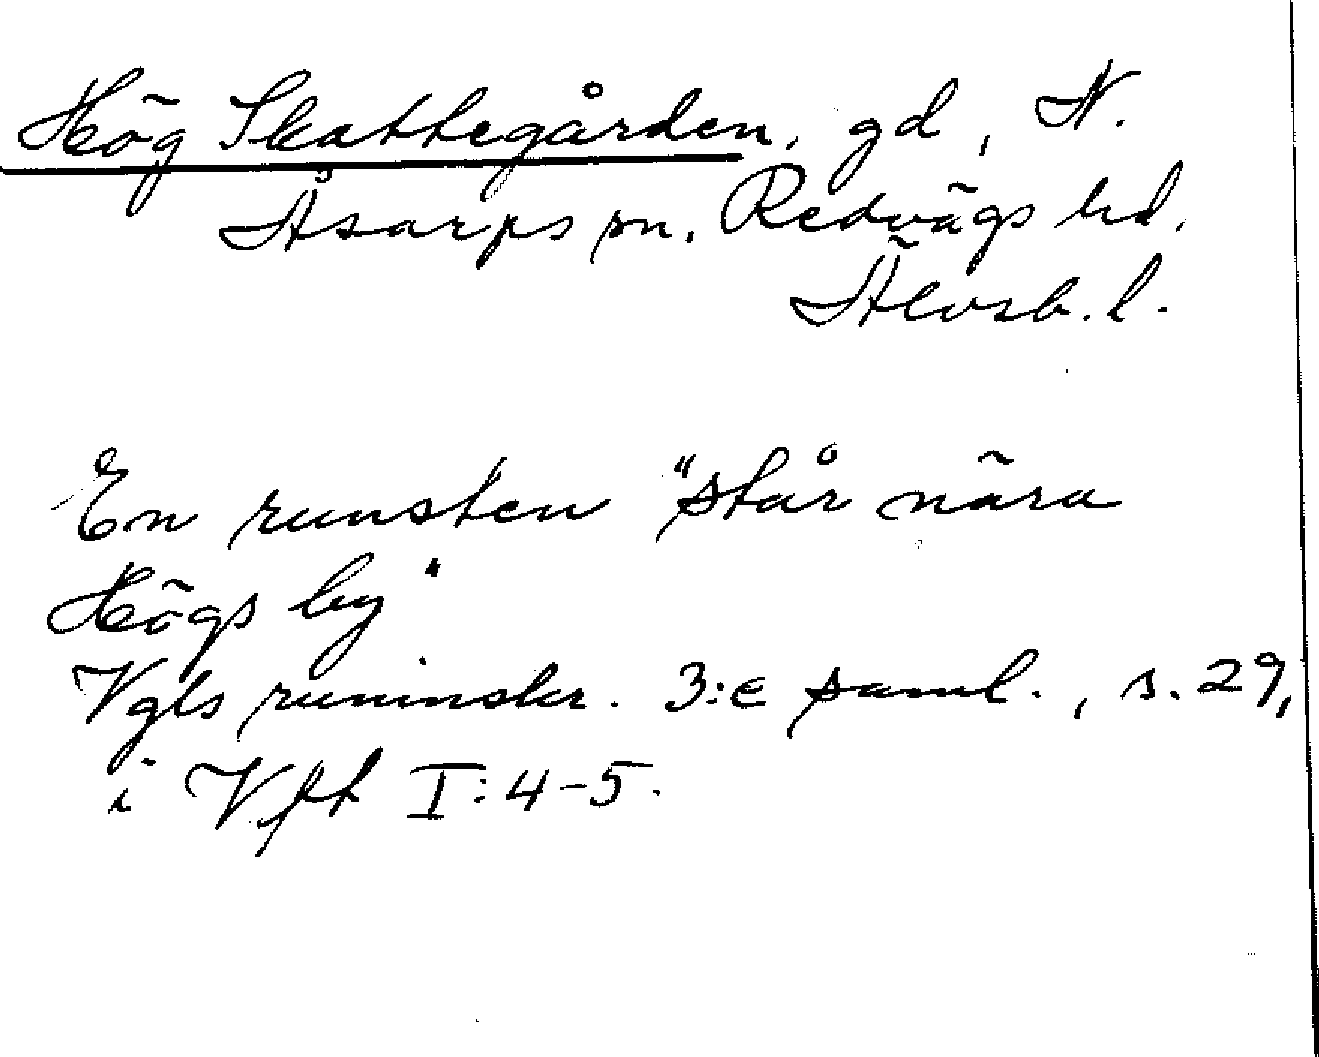 Hög Skattegården, gd, N.
Åsarps sn. Redvägs hd.
Älvsb. l.
En runsten "står nära
Högs by"
Vgls runinskr. 3:e saml., s. 29,
i Vft I:4-5.